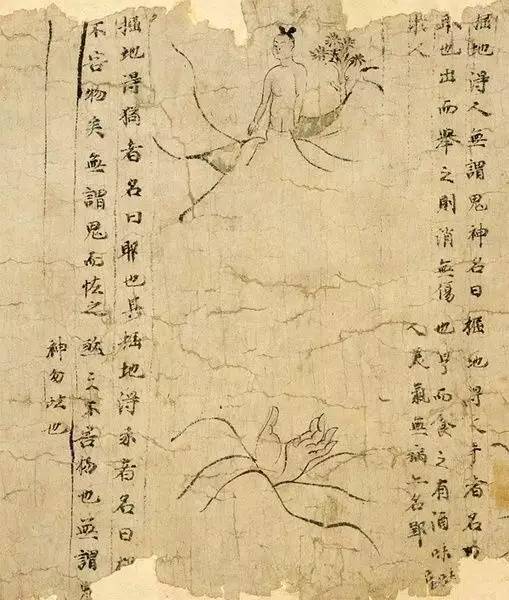 掘地得人無謂鬼神名曰掘地得人手者名
也出而舉之則消無傷也亨而食之有酒味
人 人 氣無病 名
掘地得 者名曰 也其掘地得豕者名曰
不害物矣無謂鬼而恠之 之不害傷也無謂
神勿恠也